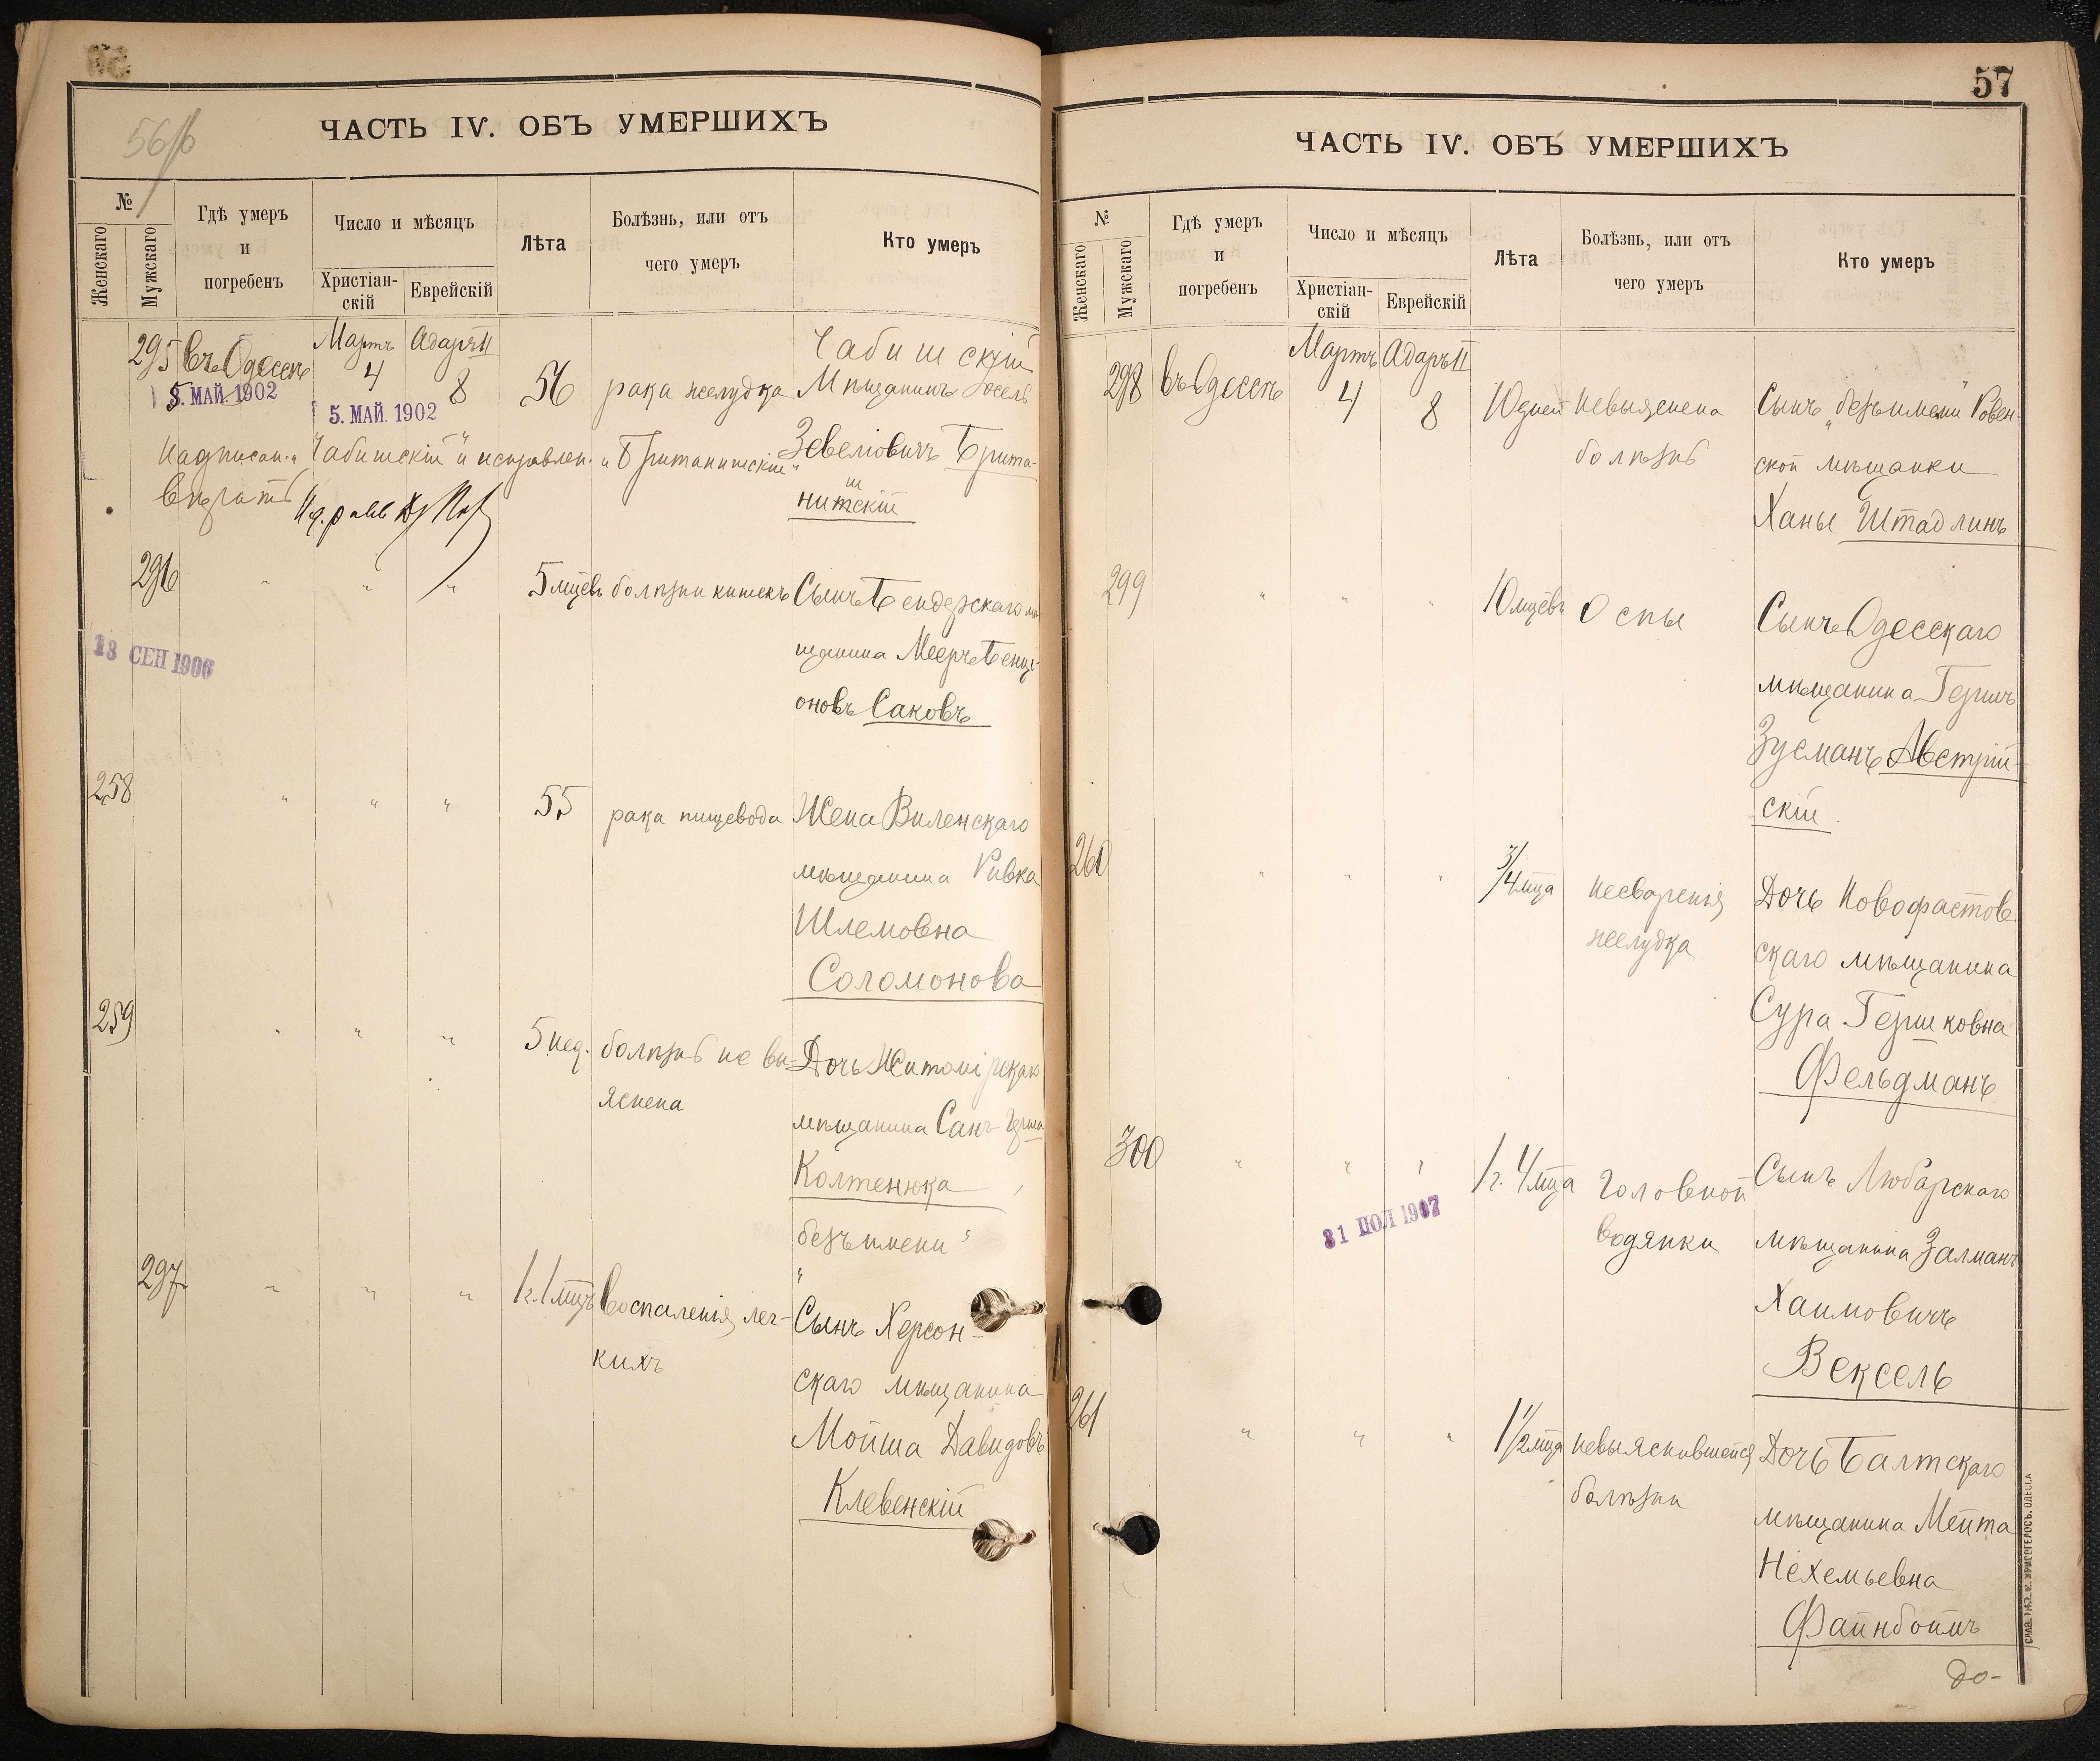 56/б
ЧАСТЬ IV. ОБЪ УМЕРШИХЪ
№
Женскаго
Мужскаго
Гдѣ умеръ
и
погребенъ
Число и мѣсяцъ
Христіан-
скій
Еврейскій
Лѣта
Болѣзнь, или отъ
чего умеръ
Кто умеръ
295 въ Одессѣ Мартъ 4 Адаръ II 8 56 рака желудка
Чабишскій
Мѣщанинъ Іосель
Зевеліовичъ Брита-
ш
нитскій
5. МАЙ. 1902
5. МАЙ. 1902
Надписан. „Чабишскій“ и исправлен. „Британишскій“
вѣрить
И.д. равв
296 " " " 5 мцевъ болѣзни кишекъ
Сынъ Бендерскаго мѣ-
щанина Мееръ Бенці-
оновъ Саковъ
18 СЕН 1906
258 " " " 55 рака пищевода
Жена Виленскаго
мѣщанина Ривка
Шлемовна
Соломонова
259 " " " 5 нед. болѣзнь не вы-
яснена
Дочь Житомірскаго
мѣщанина Санъ-Герша
Колтенюка
„безъ имени“
297 " " " 1 г. 1 мцъ воспаленія лег-
кихъ
Сынъ Херсон-
скаго мѣщанина
Мойша Давидовъ
Клевенскій
57
ЧАСТЬ IV. ОБЪ УМЕРШИХЪ
№
Женскаго
Мужскаго
Гдѣ умеръ
и
погребенъ
Число и мѣсяцъ
Христіан-
скій
Еврейскій
Лѣта
Болѣзнь, или отъ
чего умеръ
Кто умеръ
298 въ Одессѣ Мартъ 4 Адаръ II 8 10 дней невыяснена
болѣзнь
Сынъ „безъ имени“ Ровен-
ской мѣщанки
Ханы Штадлинъ
299 " " " 10 мцевъ Оспы
Сынъ Одесскаго
мѣщанина Гершъ
Зусманъ Австрій-
скій
260 " " " 3/4 мца несваренія
желудка
Дочь Новофастов
скаго мѣщанина
Сура Гершковна
Фельдманъ
300 " " " 1 г. 4 мца головной
водянки
Сынъ Любарскаго
мѣщанина Залманъ
Хаимовичъ
Вексель
31 ІЮЛ 1907
261 " " " 1 1/2 мца невыяснившейся
болѣзни
Дочь Балтскаго
мѣщанина Мейта
Нехемьевна
Файнбоймъ
до-